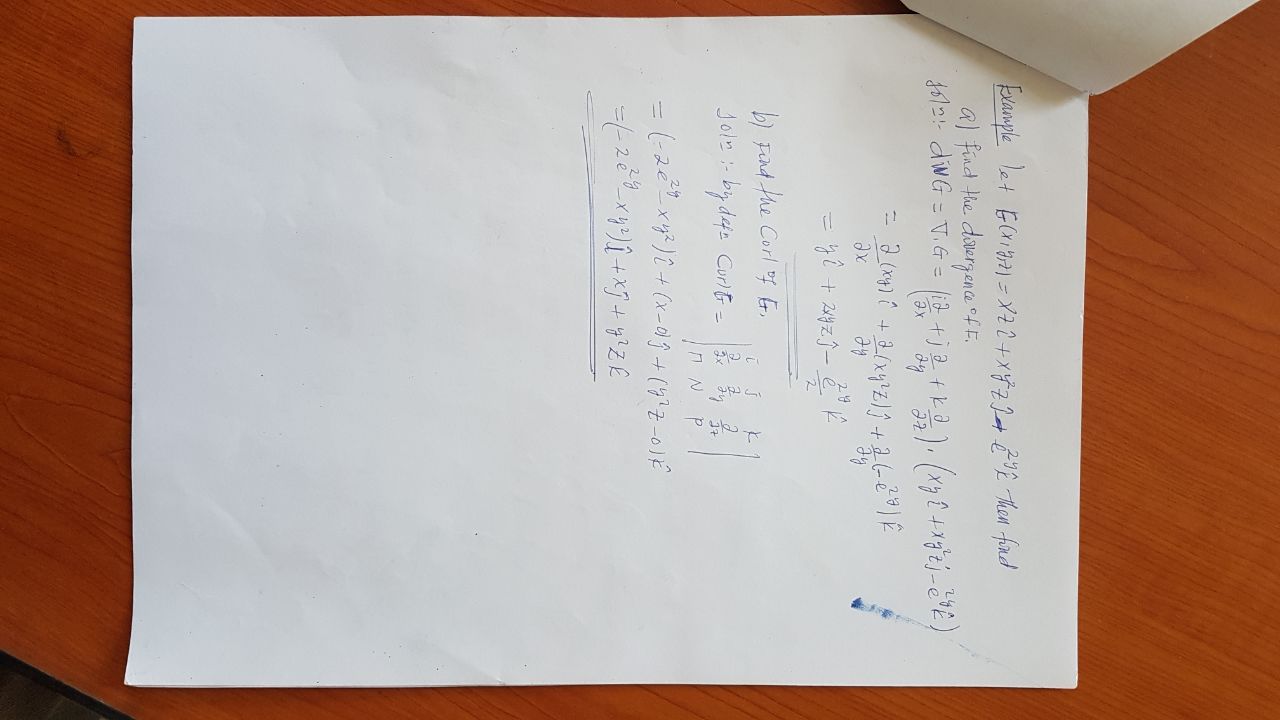 Example let F(x,y,z) = xzî + xy²zĵ - e²ʸk̂ then find
a) find the divergence of F.
soln:- divG = ∇.G = (i∂/∂x + j∂/∂y + k∂/∂z) . (xyî + xy²zĵ - e²ʸk̂)
= ∂/∂x(xy)î + ∂/∂y(xy²z)ĵ + ∂/∂y(-e²ʸ)k̂
= yî + 2xyzĵ - e²ʸ/2 k̂
b) Find the Curl of F.
soln:- by defn CurlF = | i j k ∂/∂x ∂/∂y ∂/∂z M N P |
= (-2e²ʸ - xy²)î + (x-0)ĵ + (y²z-0)k̂
= (-2e²ʸ - xy²)î + xĵ + y²zk̂